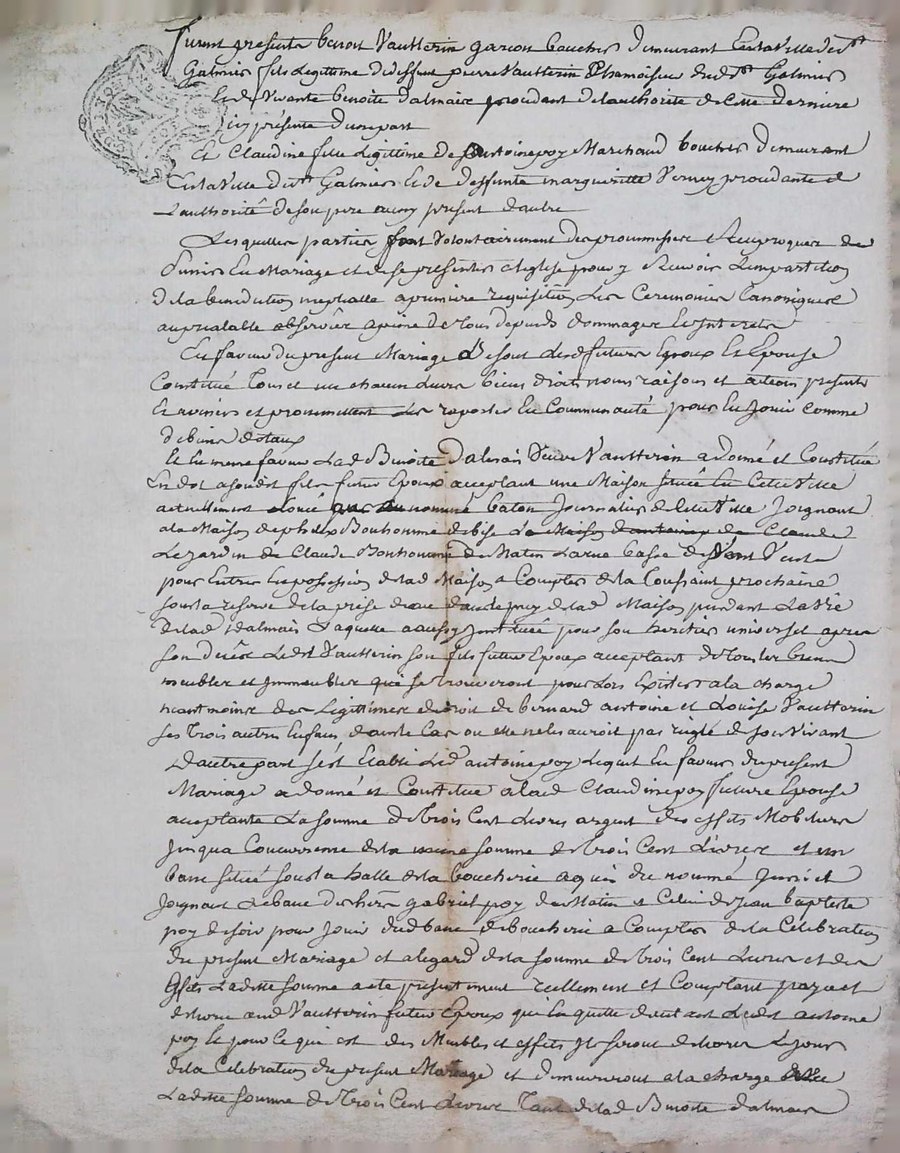 furent presents benoit Vautterin garcon boucher demeurant En la Ville de st
Galmier fils Legittime de deffunt pierre Vautterin Chamoiseur dud st Galmier
Et de Vivante benoite dalmaix procedant de lauthorité de cette derniere
icy présente dunepart
Et Claudine fille Legittime de antoine poy Marchand boucher demeurant
En la Ville de st Galmier et de deffunte margueritte Verney procedante de
Lauthorité de son pere aussy present dautre
Lesquelles parties font Volontairement des proumesses Reciproques de
sunir En Mariage et de se presenter a leglise pour y Recevoir Limpartition
de la benediction nuptialle a premiere requisition Les Ceremonies Canoniques
au prealable observées a peine de tous depends dommages Et Interets
En faveur du present Mariage se sont Lesd futurs Epoux Et Epouse
Constitué tous et un chacun Leurs biens droits noms raisons et actions presents
Et avenirs et promettent Les rapporter En Communauté pour En Jouir comme
de biens dotaux
Et En meme faveur Lad Benoite dalmais Veuve Vautterin a donné et Constitué
En dot a son dit fils futur Epoux acceptant une Maison située En Cette Ville
actuellement Louée au nommé baton Journalier de Cette Ville Joignant
a la Maison de Bonhomme de bise de Claude
Le Jardin de Claude Bonhomme de Matin La rue basse de Vent
pour Entrer En possession de lad Maison a Compter de la Toussaint prochaine
sous la reserve de la prise deau dans le puy de lad Maison pendant La Vie
de lad dalmais Laquelle a aussy Institué pour son heritier universel apres
son decés Ledit Vautterin son fils futur Epoux acceptant de tous les biens
meubles et Immeubles qui se trouveront pour Lors Exister a la charge
neantmoins des Legittimes de droit de bernard antoine et Louise Vautterin
ses trois autres Enfans dans le Cas ou elle ne les auroit pas reglé de son Vivant
dautre part sest Etabli Led antoine poy Lequel En faveur du present
Mariage a donné et Constitué a lad Claudine poy future Epouse
acceptante La somme de trois Cent Livres argent des effets Mobiliers
Jusqua Concurrence de la somme de trois Cent Livres et un
banc situé sous la halle de la boucherie aquis du nommé
Joignant Le banc des hers gabriel poy de Matin et Celui de Jean baptiste
poy de soir pour Jouir dud banc de boucherie a Compter de la Celebration
du present Mariage et a legard de la somme de trois Cent Livres et des
Effets Ladite somme a eté presentement reellement et Comptant payé et
delivré aud Vautterin futur Epoux qui En quitte dautant Ledit antoine
poy Et pour Ce qui est des Meubles et effets Ils seront delivrés Le Jour
de la Celebration du present Mariage et demeureront a la charge
Ladite somme de trois Cent Livres tant de lad Benoite dalmais